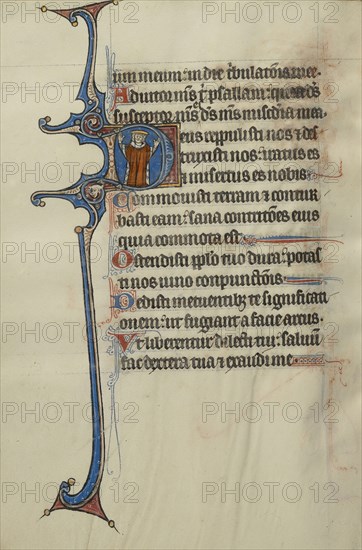 um meum: in die tribulationis mee.
Adiutor meus tibi psallam: quia deus
susceptor meus es deus meus misericordia mea.
Deus reppulisti nos et des
truxisti nos: iratus es
et misertus es nobis.
Commovisti terram et contur
basti eam: sana contritiones eius
quia commota est.
Ostendisti populo tuo dura: potas
ti nos vino conpunctionis.
Dedisti metuentibus te significati
onem: ut fugiant a facie arcus.
Ut liberentur dilecti tui: salvum
fac dextera tua et exaudi me.
PHOTO12